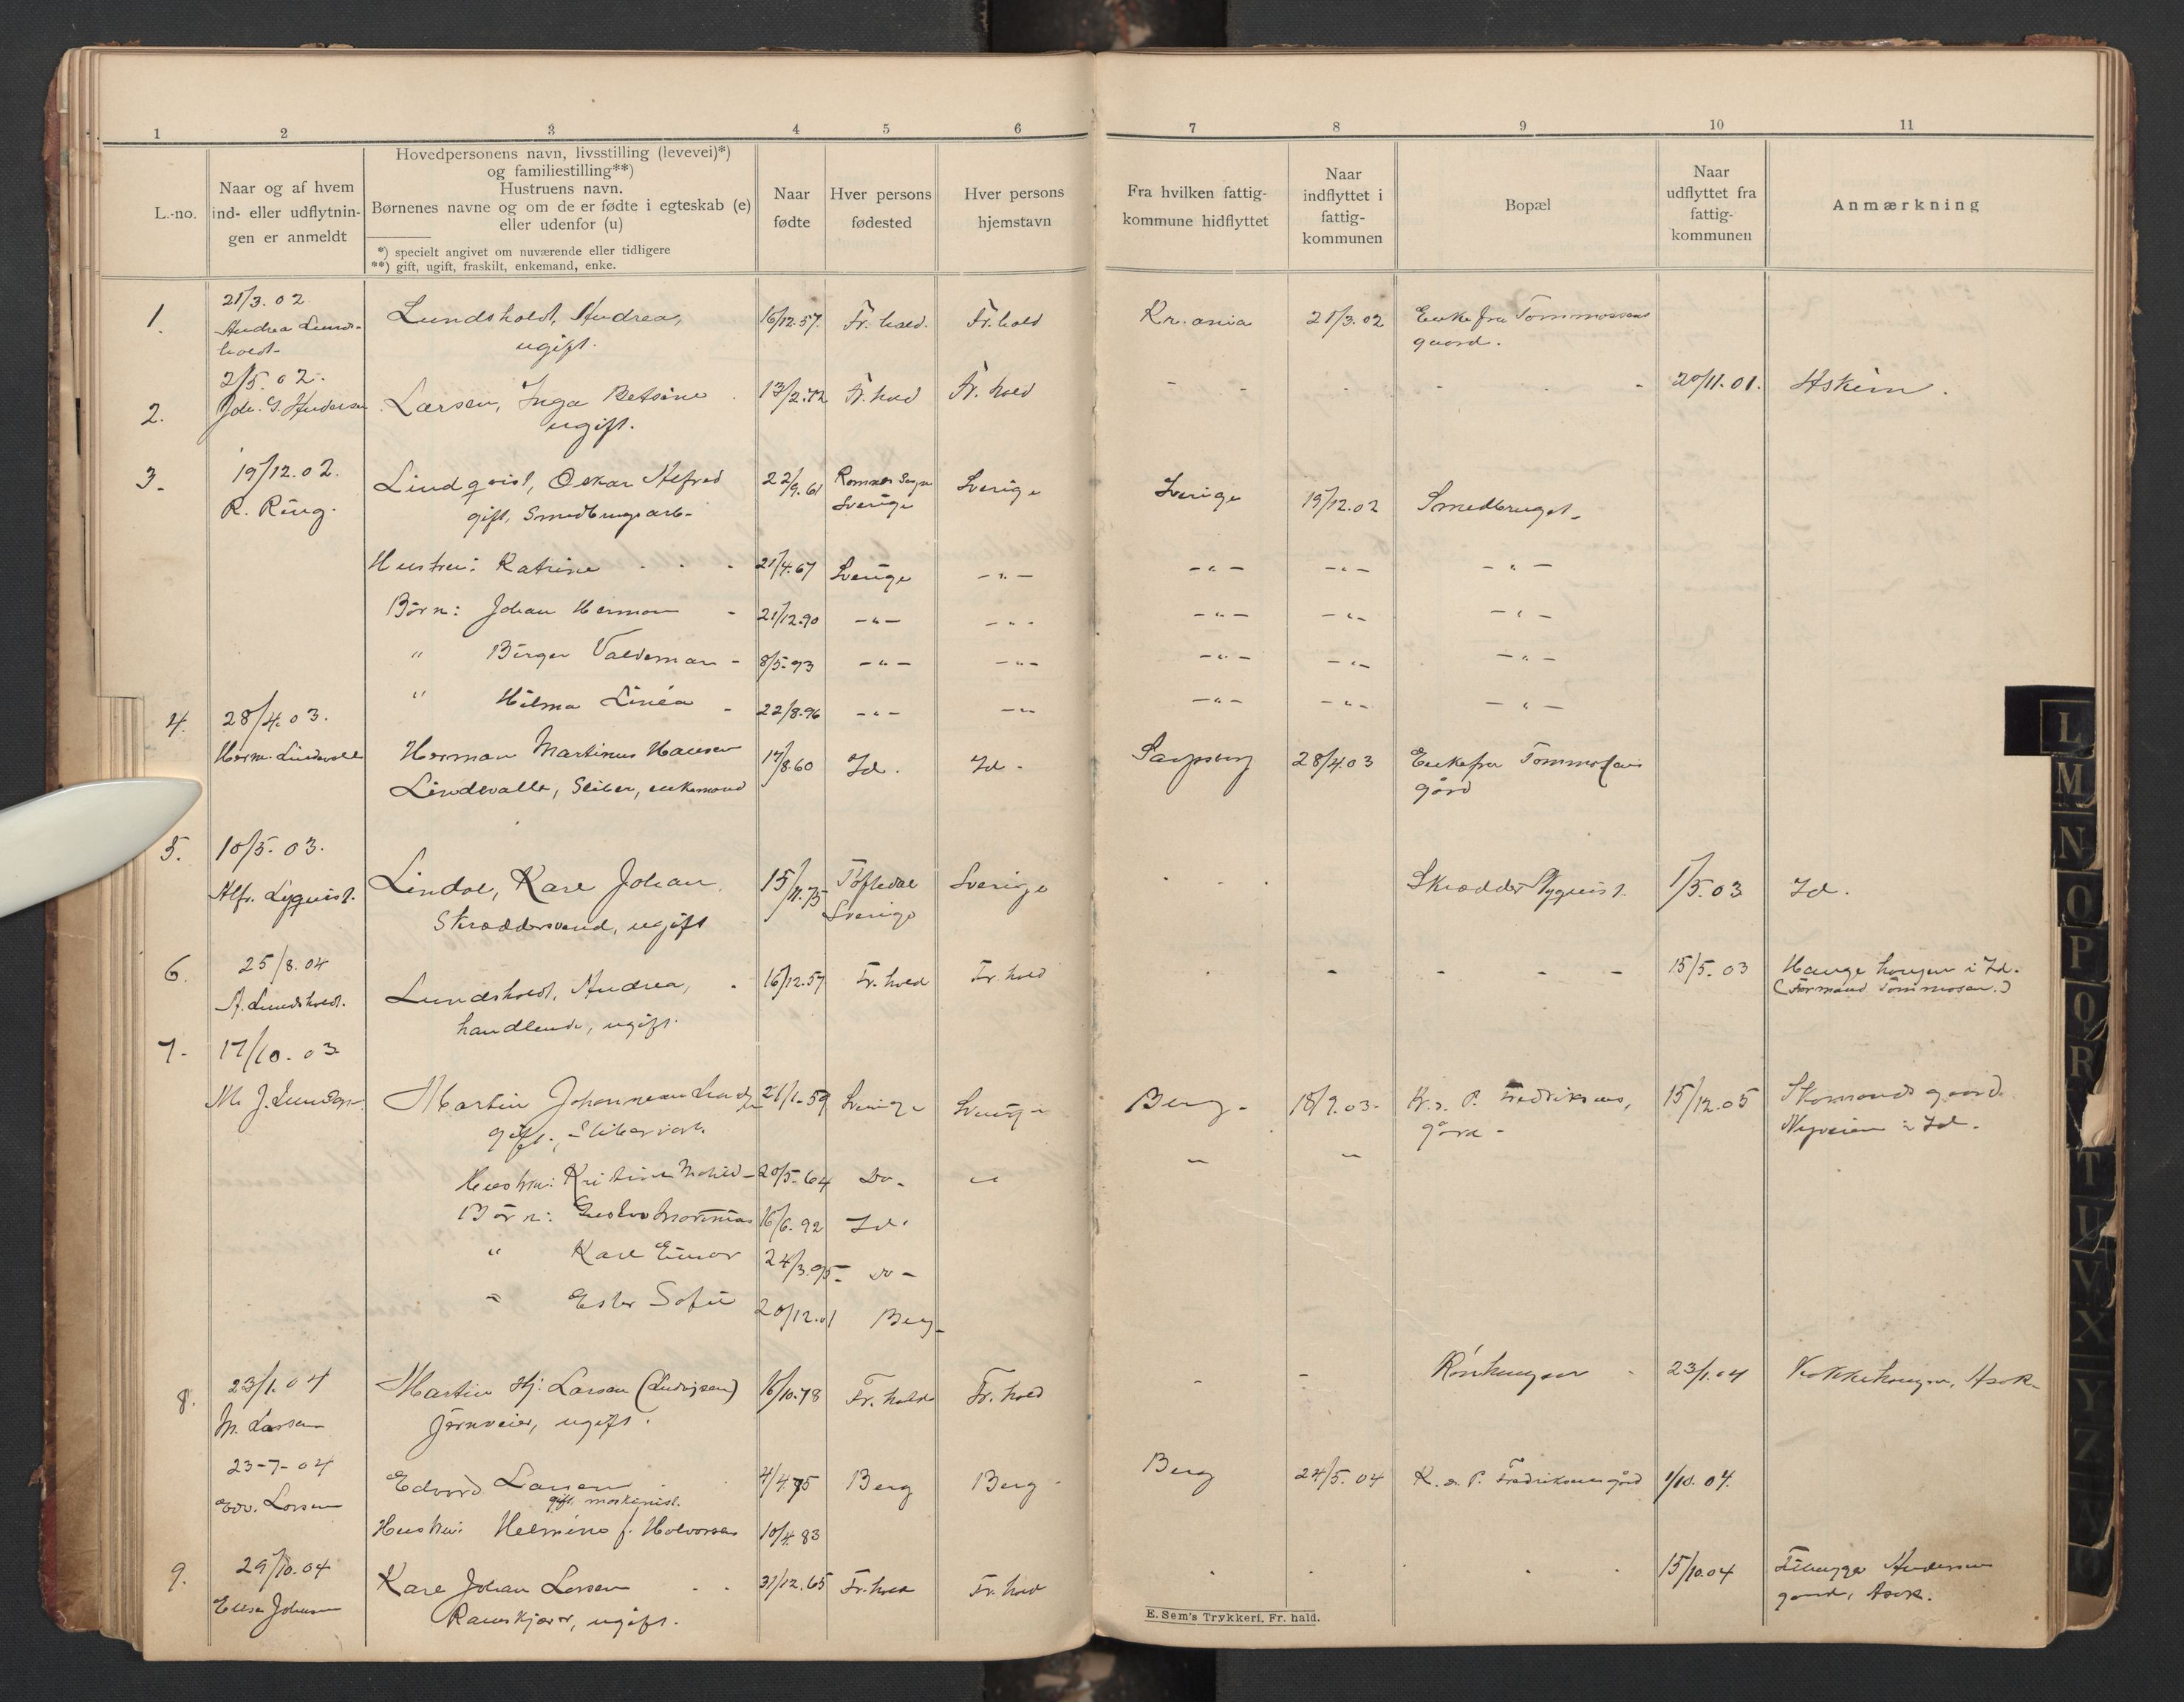 1 2 3 4 5 6 7 8 9 10 11
L.-no.
Naar og af hvem
ind- eller udflytnin-
gen er anmeldt
Hovedpersonens navn, livsstilling (levevei)*)
og familiestilling**)
Hustruens navn.
Børnenes navne og om de er fødte i egteskab (e)
eller udenfor (u)
*) specielt angivet om nuværende eller tidligere
**) gift, ugift, fraskilt, enkemand, enke.
Naar
fødte
Hver persons
fødested
Hver persons
hjemstavn
Fra hvilken fattig-
kommune hidflyttet
Naar
indflyttet i
fattig-
kommunen
Bopæl
Naar
udflyttet fra
fattig-
kommunen
Anmærkning
21/3. 02.
1. Andrea Lunds- Lundsholdt, Andrea, 16/12.57. Fr.hald. Fr.hald Kr.ania 21/3.02 Enkefru Tommosens
holdt- ugift. gaard.
2/5. 02.
2. Joh. G. Andersen Larsen, Inga Betsine 13/2.72 Fr.hald Fr.hald - - - - - - 20/11.01. Askim.
ugift.
3. 19/12.02. Lindqvist, Oskar Alfred 22/9.61 Sogn Sverige Sverige 19/12.02 Smedbruget-
R. Ring. gift, Smedbrugsarb- Sverige
Hustru: Katrine - - - 21/4.67 Sverige -"- -"- -"- -"-
Børn: Johan Herman - 21/12.90 -"- -"- -"- -"- -"-
" Birger Valdemar - 8/5.93 -"- -"- -"- -"- -"-
" Hilma Linéa - 22/8.96 -"- -"- -"- -"- -"-
4. 28/4.03.
Herm. Lindevalle Herman Martinus Hansen 17/8.60 Id. Id. Sarpsborg 28/4.03 Enkefru Tommosens
Lindevalle, Sliber, enkemand gård
5. 10/5.03.
Alfr. Nyquist. Lindal, Karl Johan. 15/11.75 Töftedal Sverige - - - Skrædder Nyquist. 1/5.03 Id.
Skræddersvend, ugift Sverige
6. 25/8.04
A. Lundsholdt. Lundsholdt, Andrea, - 16/12.57 Fr.hald Fr.hald - - - - - 15/5.03 Hauge haugen i Id.
handlende, ugift. (Formand Tommosen.)
7. 17/10.03
M. J. Martin Johannesen 21/1.59 Sverige Sverige Berg- 18/9.03- K. s. P. Fredriksens, 15/12.05 gaard.
gift., Sliberiarb. gård- Nyveien i Id.
Hustru: Kristine 20/5-64 Do- " " "
Børn: Gustav 16/6.92 Id.
" Karl Einar 24/3.95- Do-
" Ester Sofie 20/12.01 Berg-
8. 23/1.04 Martin Hj: Larsen (Ludvigsen) 16/10.78 Fr.hald Fr.hald - - Rönhaugen - 23/1.04 Kokkehaugen, Asak-
M. Larsen Jernveier, ugift.
23-7-04 Edvard Larsen 4/4.75 Berg Berg- Berg 24/5.04 K. s. P. Fredriksens gård 1/10.04.
Edv. Larsen gift, maskinist.
Hustru: Helmine f. Halvorsen 10/4.83
9. 29/10.04 Karl Johan Larsen - - 31/12.65 Fr.hald Fr.hald - - - - 15/10.04 Andersens
Johansen ugift. gaard, Asak.
E. Sem's Trykkeri, Fr. hald.
L
M
N
O
P
Q
R
T
U
V
X
Y
Z
Æ
Ø